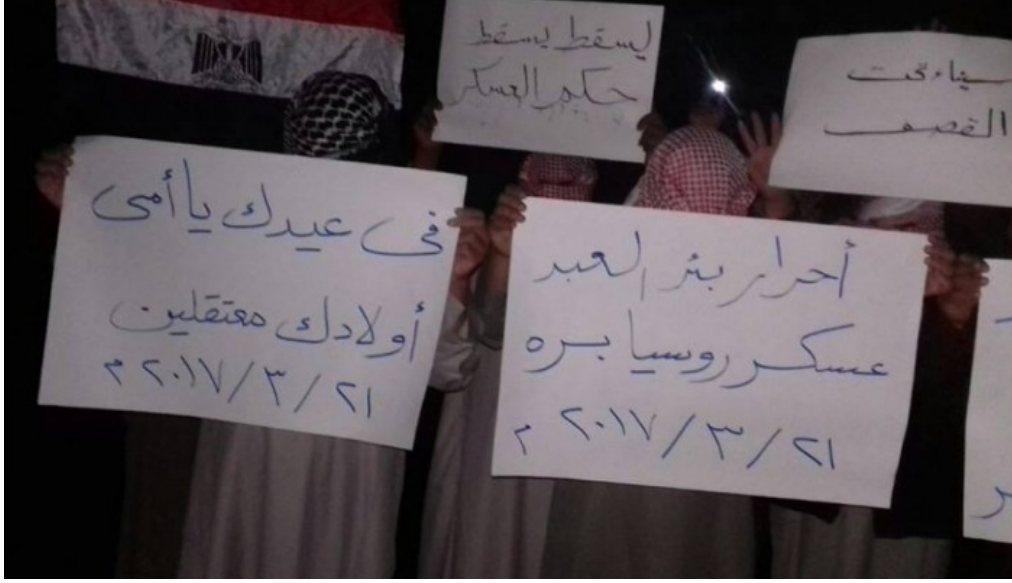 ليسقط يسقط
حكم العسكر
سيناء تحت
القصف
فى عيدك يا أمى
أولادك معتقلين
٢١/٣/٢٠١٧ م
أحرار بئر العبد
عسكر روسيا بره
٢١/٣/٢٠١٧ م